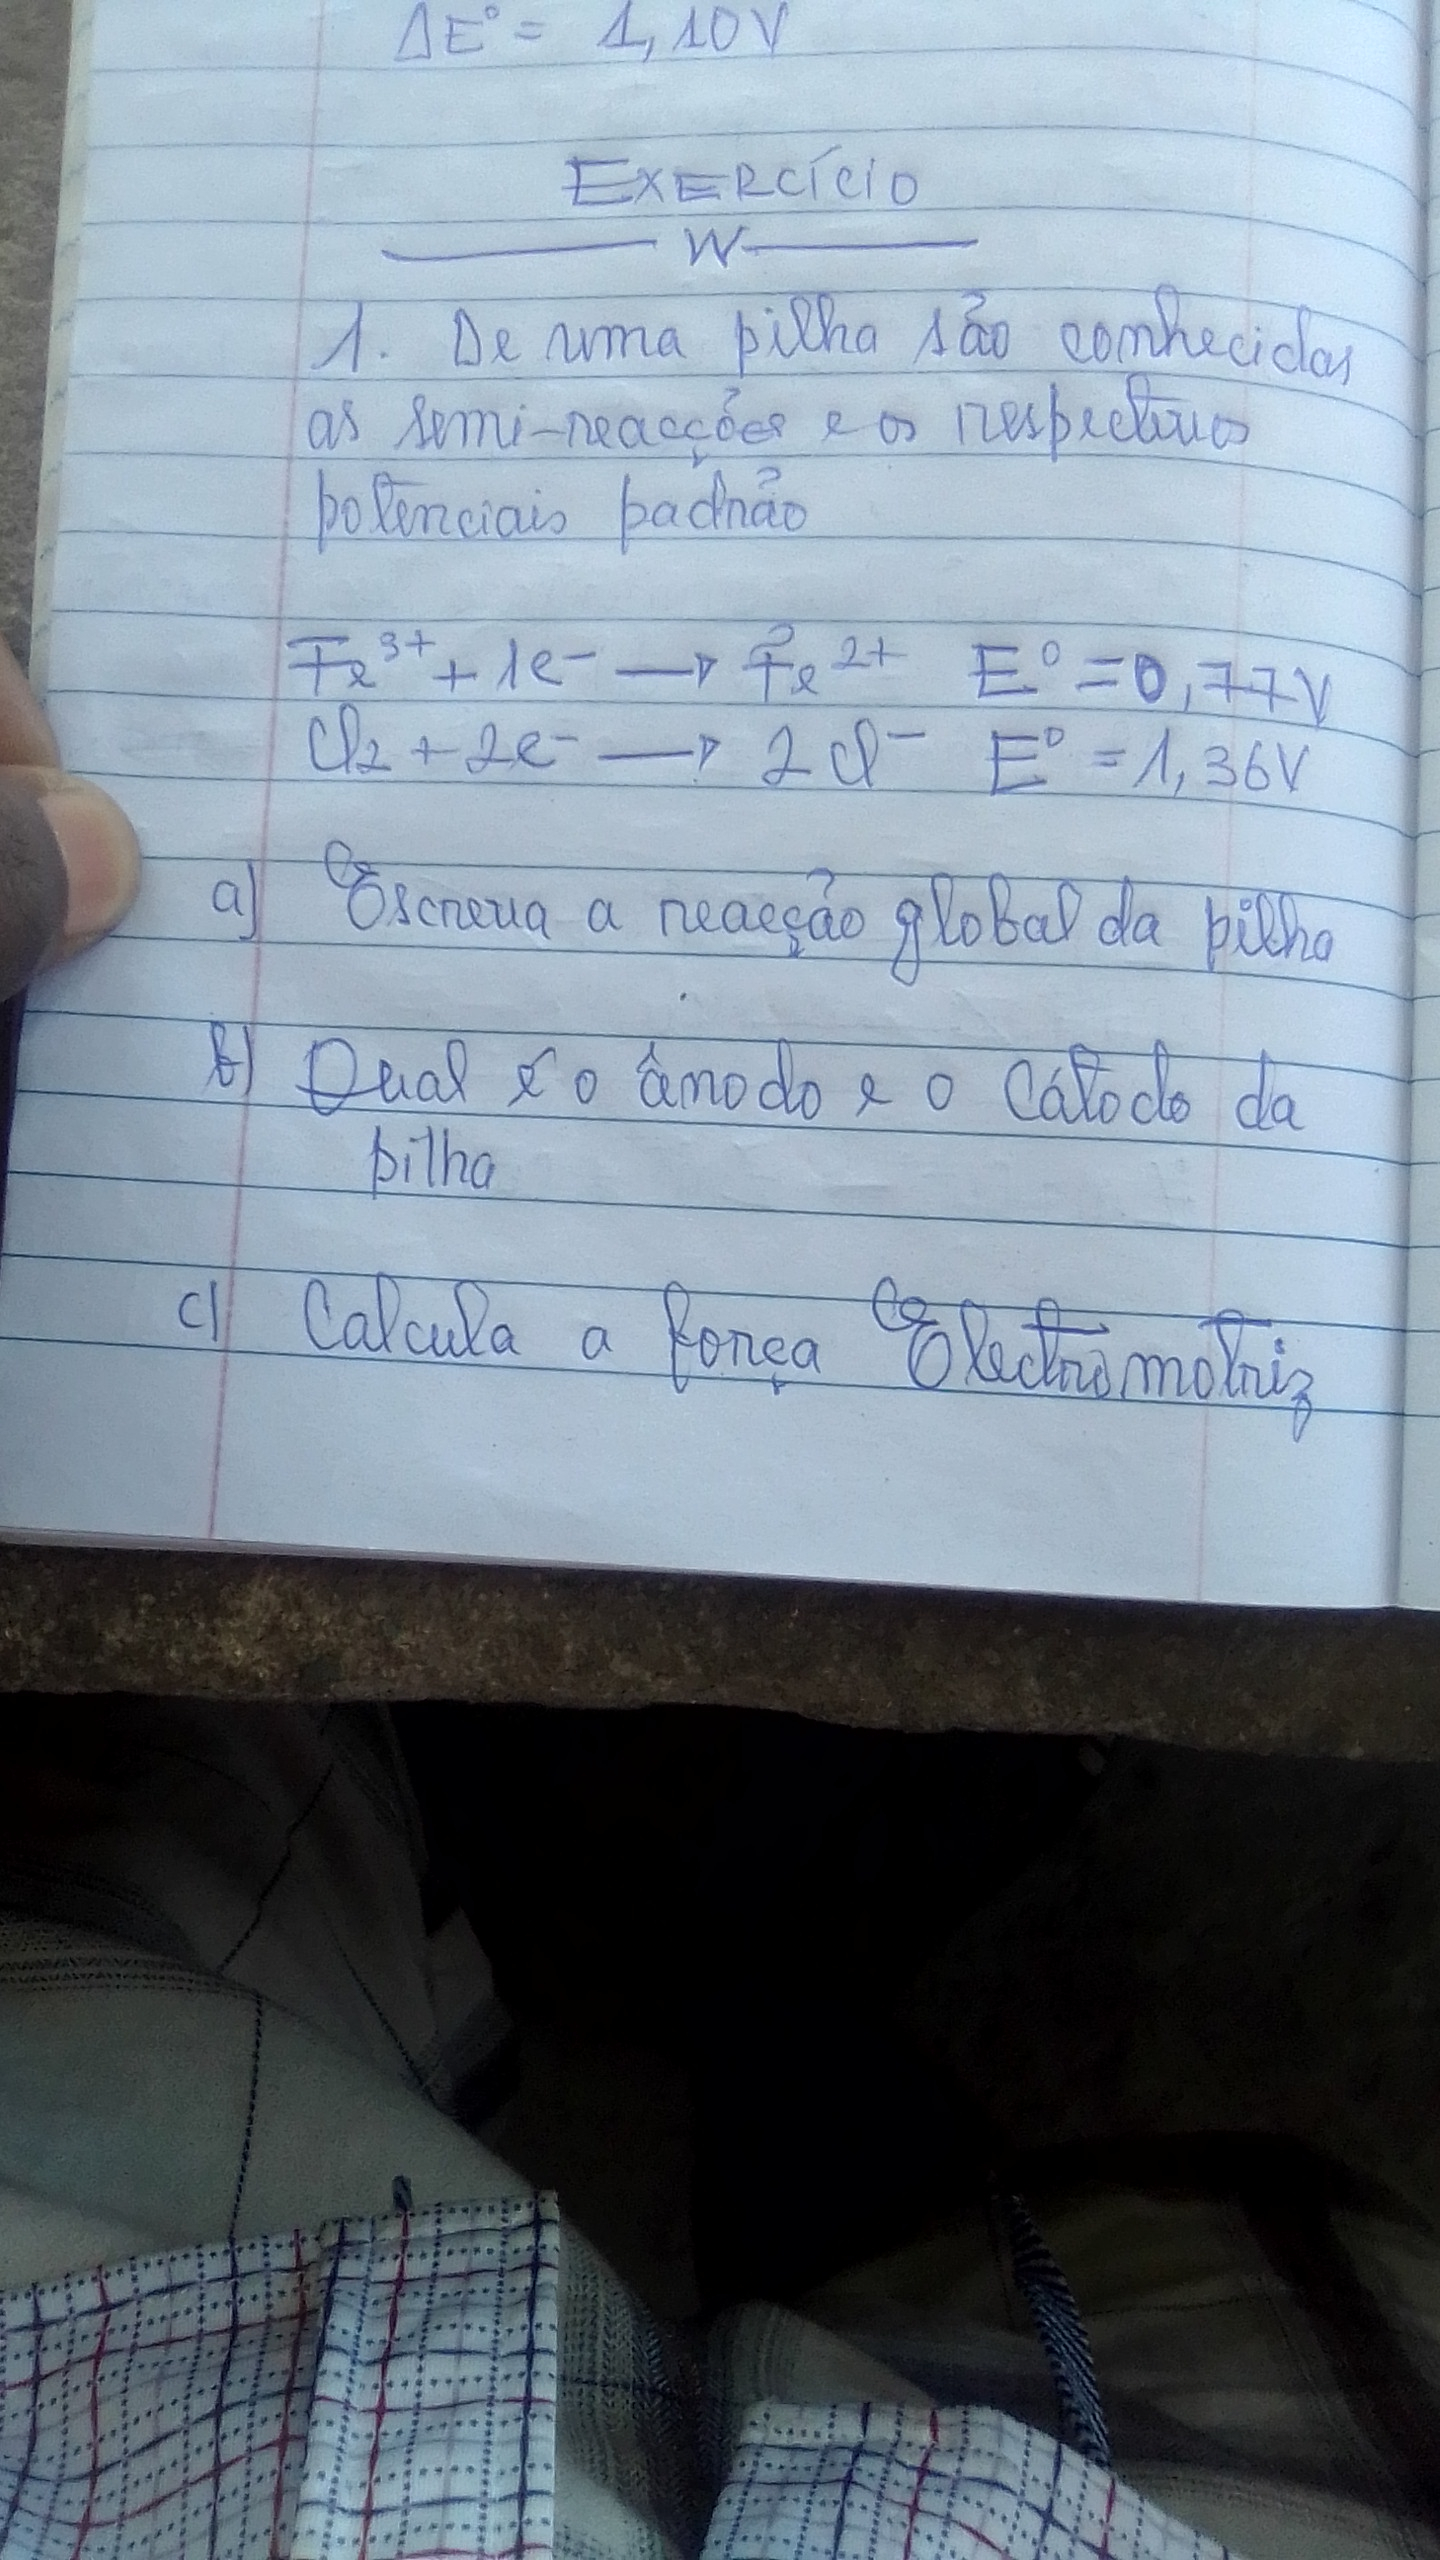 ΔE° = 1,10V
EXERCÍCIO
W
1. De uma pilha são conhecidas
as semi-reacções e os respectivos
potenciais padrão
Fe³⁺ + 1e⁻ → Fe²⁺ E° = 0,77V
Cl₂ + 2e⁻ → 2Cl⁻ E° = 1,36V
a) Escreva a reacção global da pilha
b) Qual é o ânodo e o Cátodo da
pilha
c) Calcula a força Electromotriz